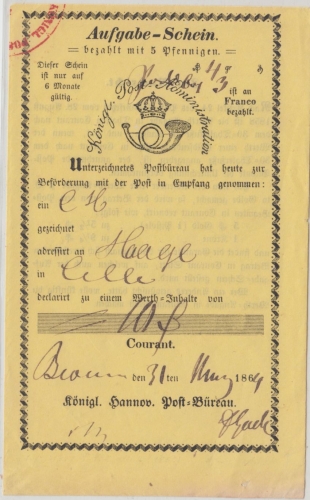 Aufgabe-Schein.
bezahlt mit 5 Pfennigen.
Dieser Schein
ist nur auf
6 Monate
gültig.
ist an
Franco
bezahlt.
Königl. Post-Administration
Unterzeichnetes Postbüreau hat heute zur
Beförderung mit der Post in Empfang genommen:
ein
gezeichnet
adressirt an Haage
in Celle
declarirt zu einem Werth-Inhalte von
Courant.
den 31ten 1864
Königl. Hannov. Post-Büreau.